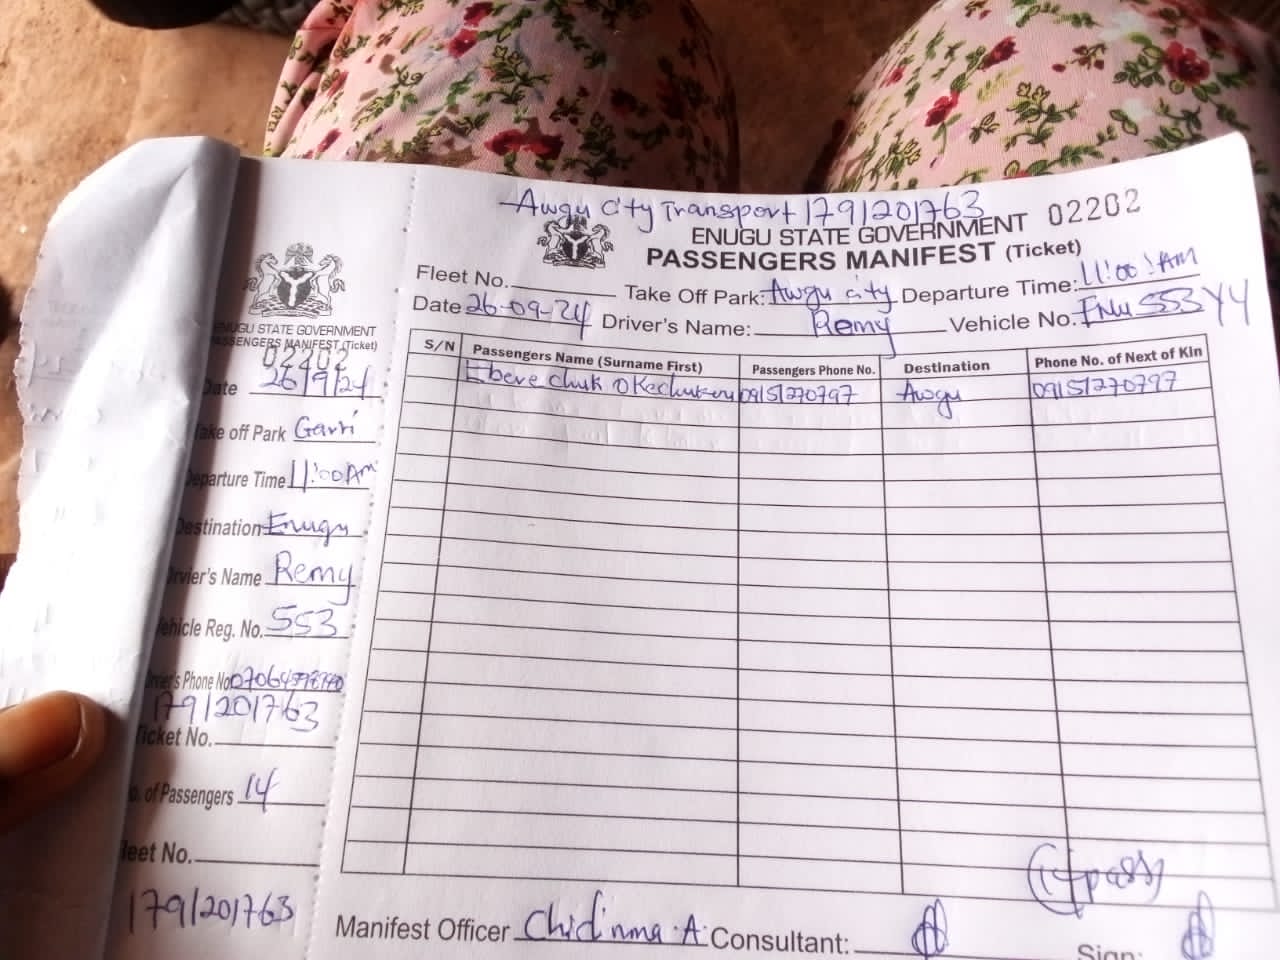 Awgu city Transport 179/201763
ENUGU STATE GOVERNMENT 02202
PASSENGERS MANIFEST (Ticket)
Fleet No. Take Off Park: Awgu city Departure Time: 11:00 AM
Date 26-09-24 Driver's Name: Remy Vehicle No. ENU 553 YY
S/N Passengers Name (Surname First) Passengers Phone No. Destination Phone No. of Next of Kin
Eberechuk Okechukwu 09151270797 Awgu 09151270797
(14 pass)
Manifest Officer Chidinma .A. Consultant: Sign:
ENUGU STATE GOVERNMENT
PASSENGERS MANIFEST (Ticket)
02202
Date 26/9/24
Take off Park Garri
Departure Time 11:00AM
Destination Enugu
Drvier's Name Remy
Vehicle Reg. No. 553
Driver's Phone No
179/201763
Ticket No.
No. of Passengers 14
Fleet No.
179/201763